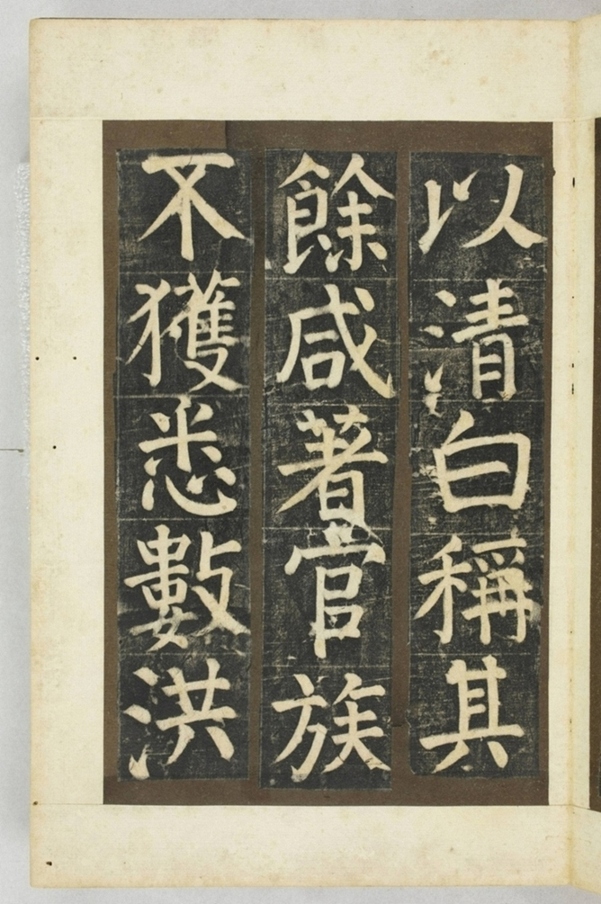 以清白稱其
餘咸著官族
不獲悉數洪